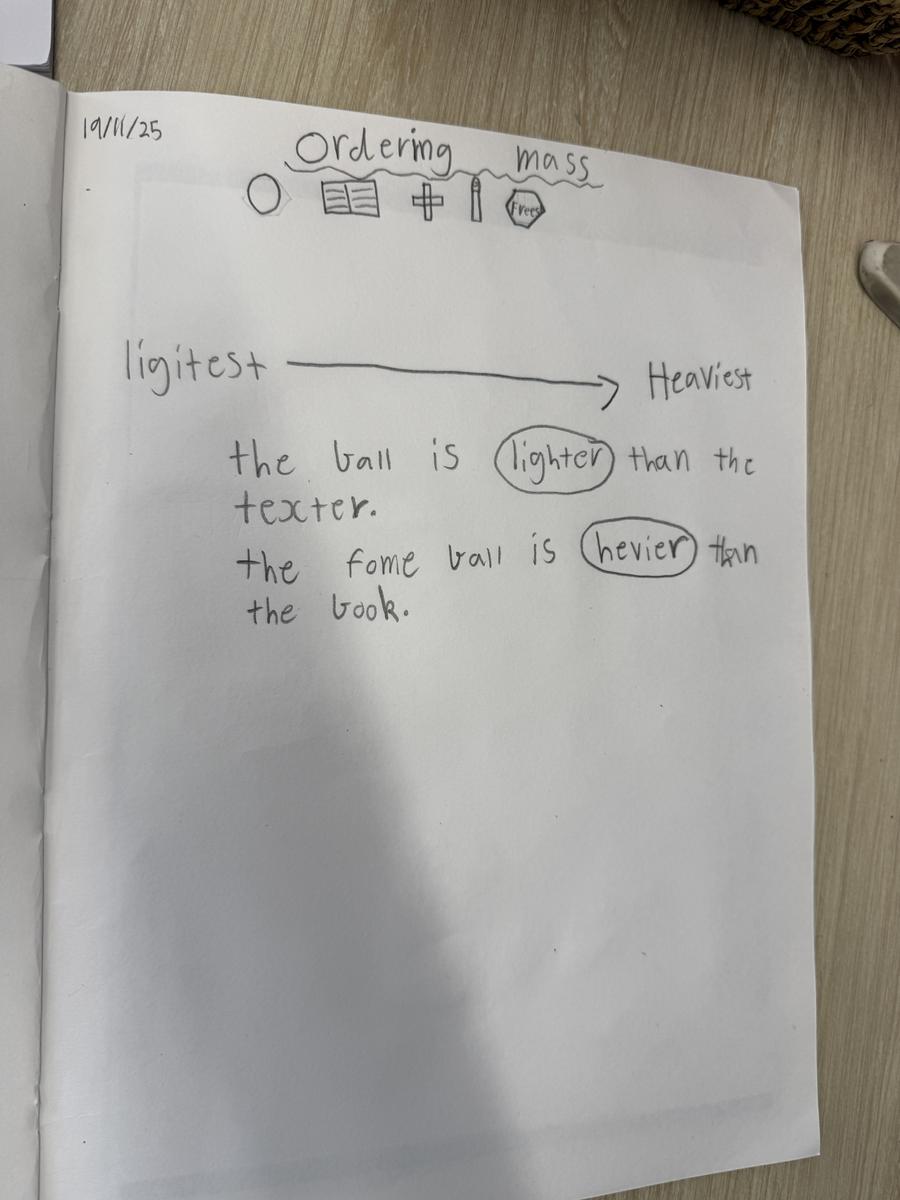 19/11/25
Ordering mass
Frees
ligitest
Heaviest
the ball is lighter than the
texter.
the fome ball is hevier than
the book.